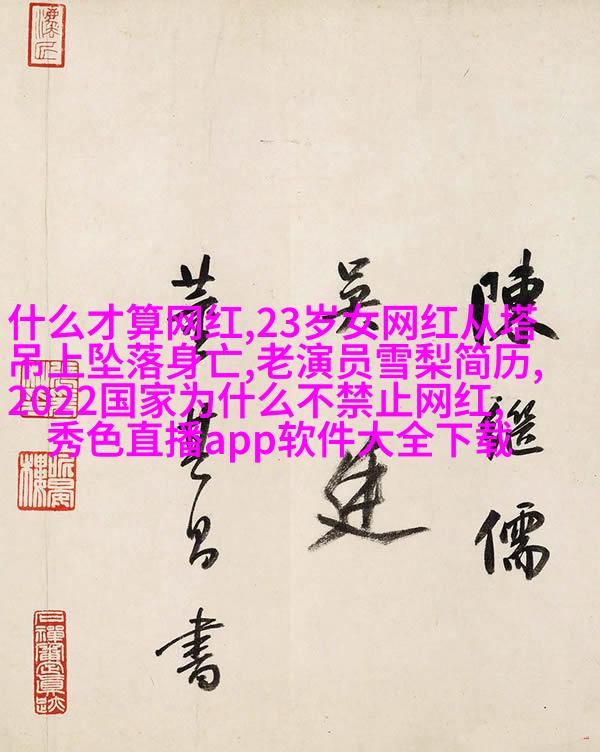 什么才算网红,23岁女网红从塔
吊上坠落身亡,老演员雪梨简历,
2022国家为什么不禁止网红,
秀色直播app软件大全下载
陳繼儒
吳廷
董其昌書